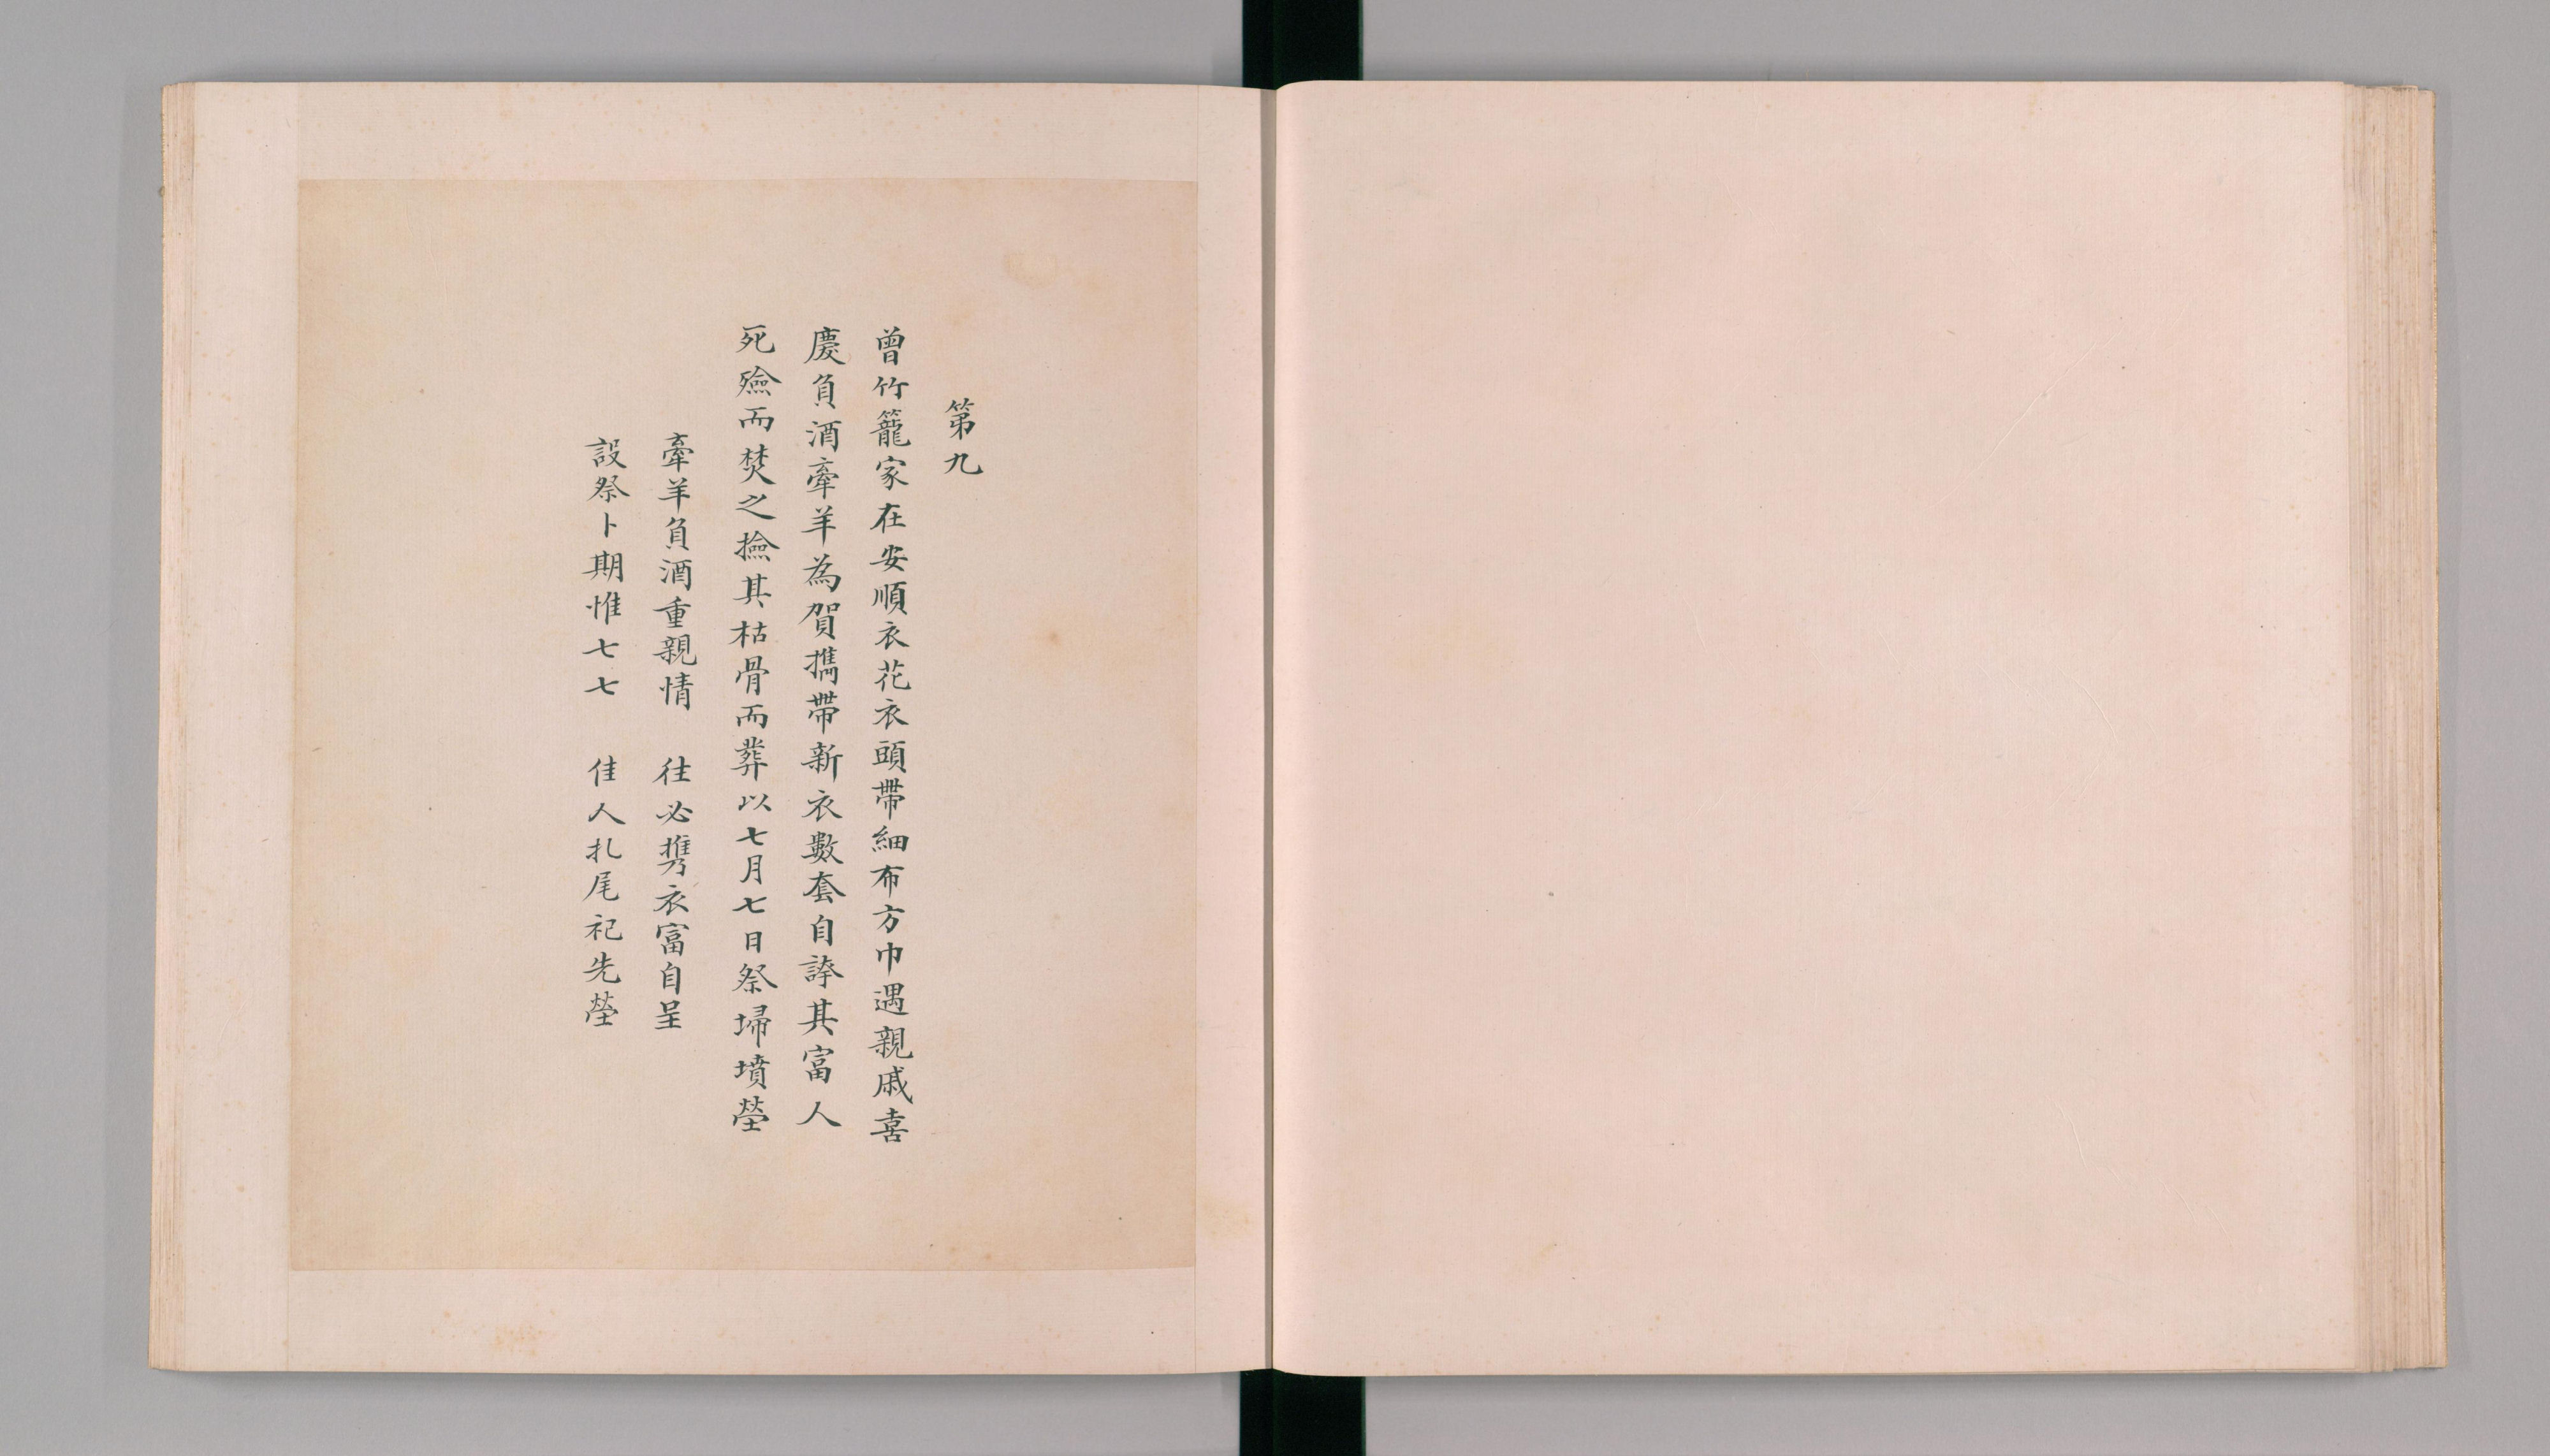 第九
曾竹籠家在安順衣花衣頭帶細布方巾遇親戚喜
慶負酒牽羊為賀攜帶新衣數套自誇其富人
死殮而焚之撿其枯骨而葬以七月七日祭埽墳塋
牽羊負酒重親情 往必携衣富自呈
設祭卜期惟七七 佳人扎尾祀先塋